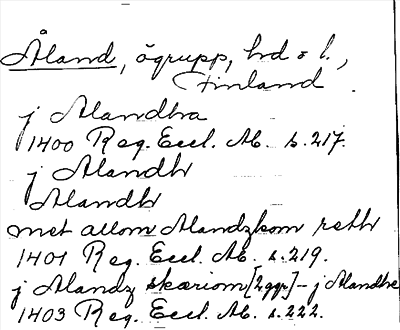 Åland, ögrupp, hd o l.,
Finland.
j Alandha
1400 Reg. Eccl. Ab. s. 217.
j Alandh
Alandh
met allom Alandzkom reth
1401 Reg. Eccl. Ab. s. 219.
j Alandz skæriom [2 ggr] - j Alandhe
1403 Reg. Eccl. Ab. s. 222.